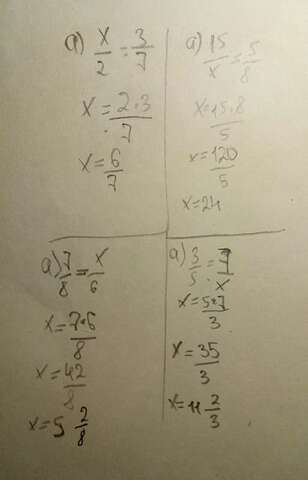 a) x/2 = 3/7
x = 2·3/7
x = 6/7
a) 15/x = 5/8
x = 15·8/5
x = 120/5
x = 24
a) 7/8 = x/6
x = 7·6/8
x = 42/8
x = 5 2/8
a) 3/5 = 7/x
x = 5·7/3
x = 35/3
x = 11 2/3